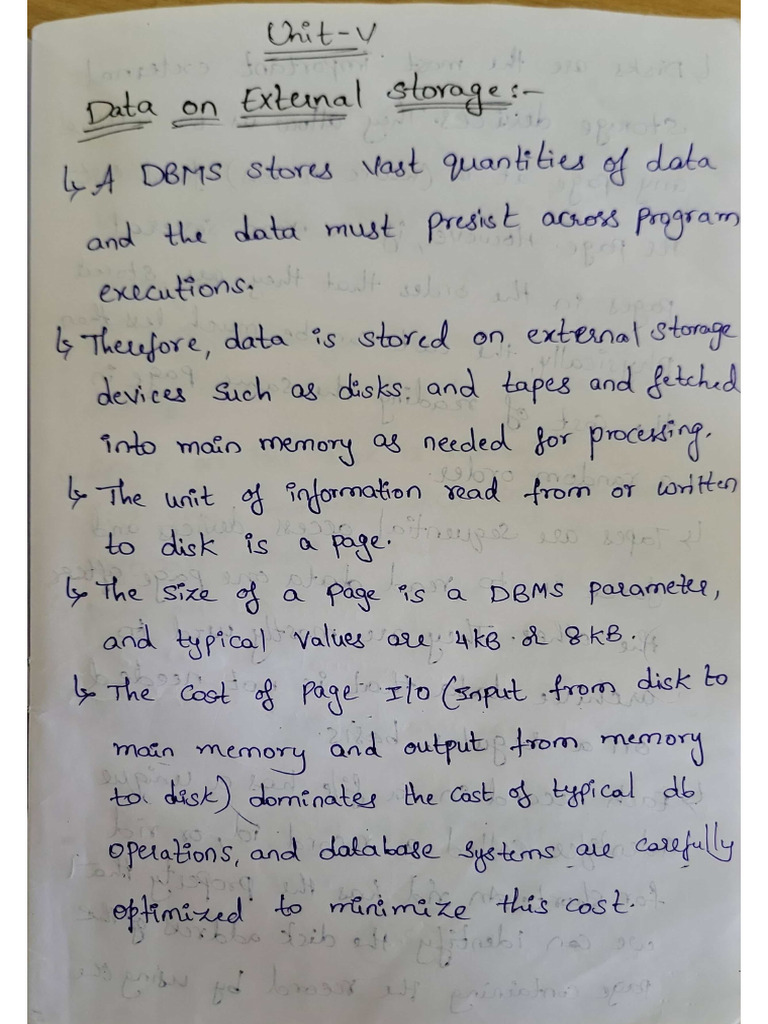 Unit-V
Data on External Storage:-
↳ A DBMS stores vast quantities of data
and the data must presist across program
executions.
↳ Therefore, data is stored on external storage
devices such as disks and tapes and fetched
into main memory as needed for processing.
↳ The unit of information read from or written
to disk is a page.
↳ The size of a page is a DBMS parameter,
and typical values are 4KB or 8KB.
↳ The cost of page I/O (Input from disk to
main memory and output from memory
to disk) dominates the cost of typical db
operations, and database systems are carefully
optimized to minimize this cost.